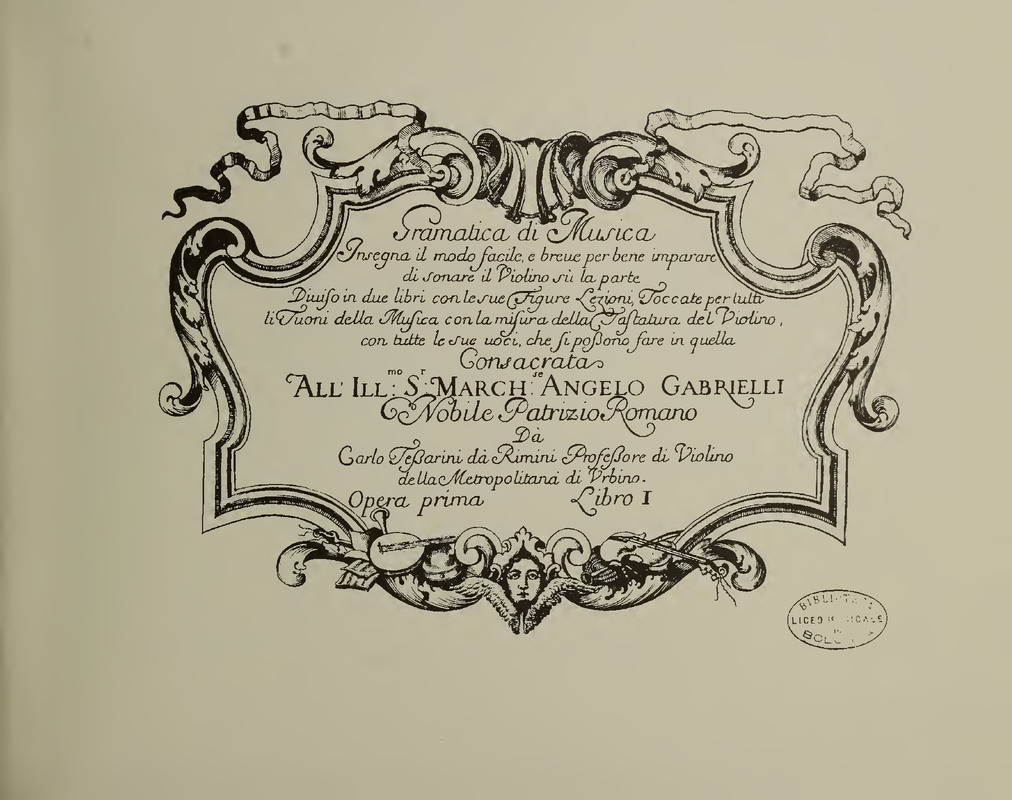 Gramatica di Musica
Insegna il modo facile, e breue per bene imparare
di sonare il Violino sù la parte
Diuiſo in due libri con le sue Figure Lezioni, Toccate per tutti
li Tuoni della Muſica con la miſura della Taſtatura del Violino,
con tutte le sue uoci, che ſi poßono fare in quella
Consacrata
ALL' ILL:mo Sr: MARCH:se ANGELO GABRIELLI
Nobile Patrizio Romano
Dà
Carlo Teßarini dà Rimini Profeßore di Violino
della Metropolitana di Vrbino.
Opera prima Libro I
LICEO